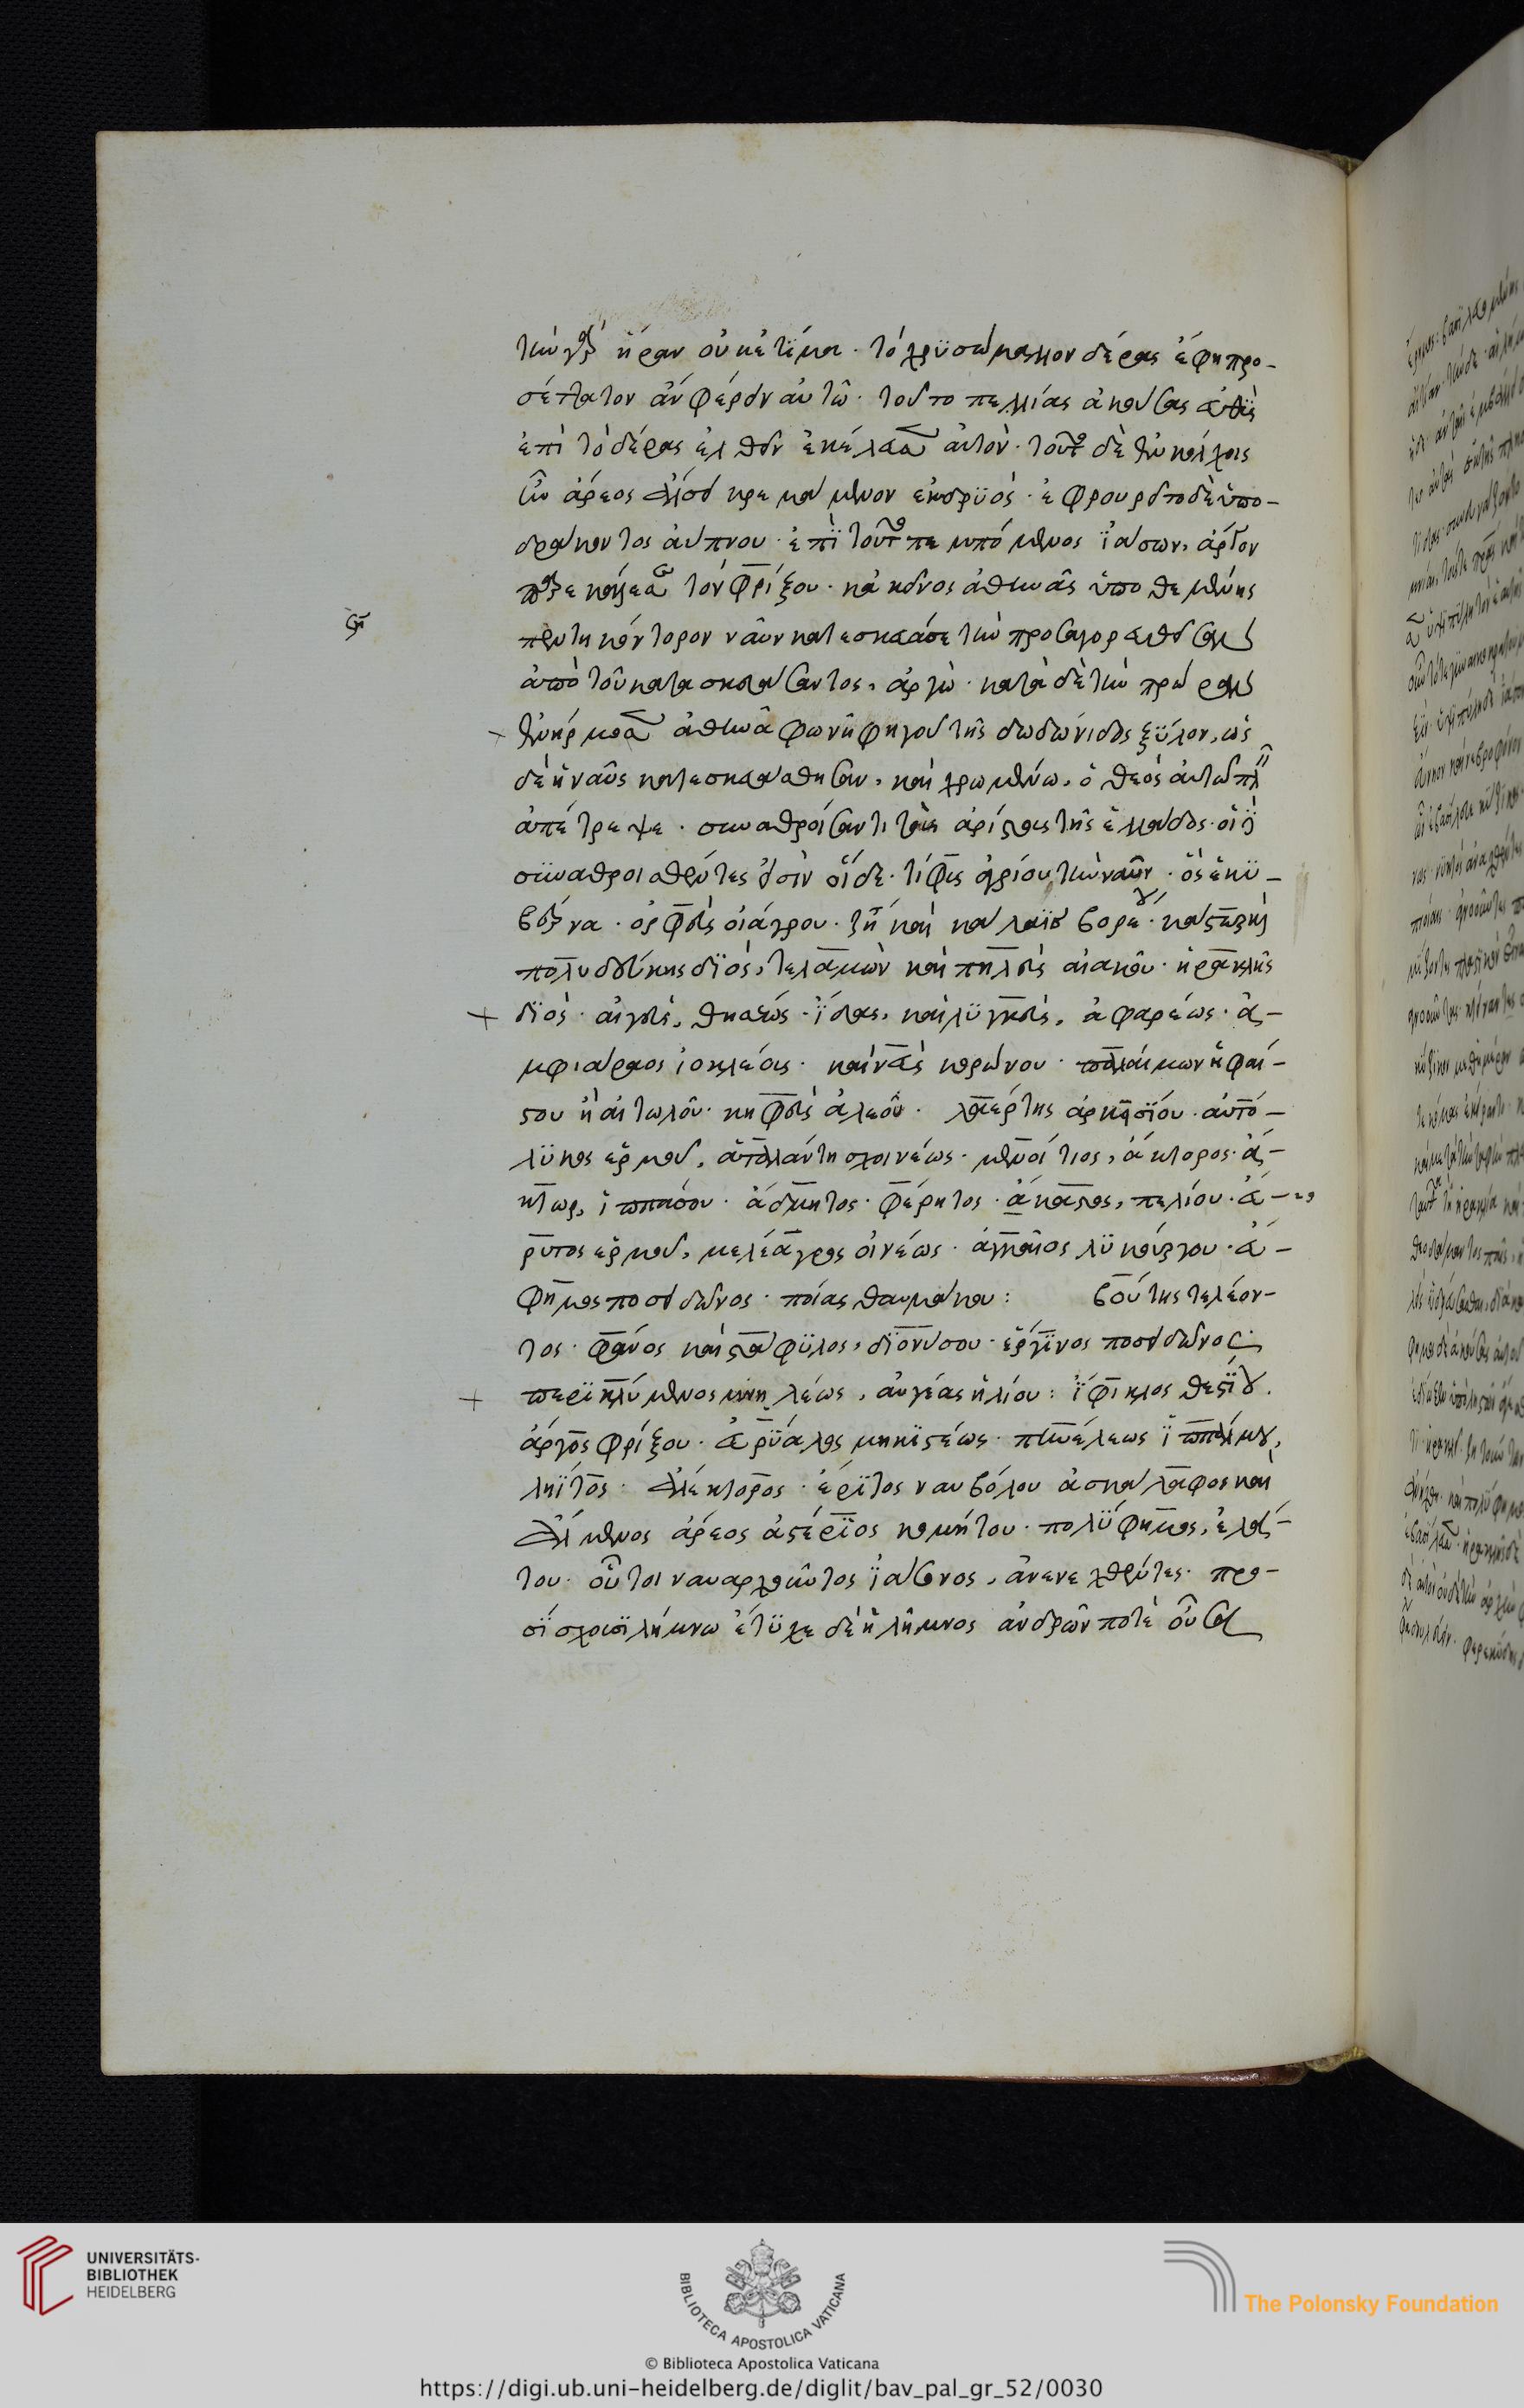 τὴν γὰρ ἥραν οὐκ ἐτίμα· τὸ χρυσόμαλλον δέρας ἔφη προ-
σέταττον ἂν φέρειν αὐτῷ· τοῦτο πελίας ἀκούσας εὐθὺς
ἐπὶ τὸ δέρας ἐλθεῖν ἐκέλευσεν αὐτὸν· τοῦτο δὲ ἐν κόλχοις
ἦν ἄρεος ἄλσει κρεμάμενον ἐκ δρυὸς· ἐφρουρεῖτο δὲ ὑπο-
δράκοντος ἀύπνου· ἐπὶ τοῦτο πεμπόμενος ἰάσων, ἄργον
παρεκάλεσε τὸν φρίξου· κἀκεῖνος ἀθηνᾶς ὑποθεμένης
πεντηκόντορον ναῦν κατεσκεύασε τὴν προσαγορευθεῖσαν
ἀπὸ τοῦ κατασκευάσαντος, ἀργὼ· κατὰ δὲ τὴν πρώραν
ἐνήρμοσεν ἀθηνᾶ φωνῆ φηγοῦ τῆς δωδωνίδος ξύλον, ὡς
δὲ ἡ ναῦς κατεσκευάσθη καὶ χρωμένω, ὁ θεὸς αὐτῷ πλεῖν
ἀπέτρεψε· συναθροίσαντι τοὺς ἀρίστους τῆς ἑλλάδος· οἱ
συναθροισθέντες εἰσὶν οἵδε· τίφυς ἁγνίου τὴν ναῦν· ὃς ἐκυ-
βέρνα· ὀρφεὺς οἰάγρου· ζήτης καὶ κάλαϊς βορέου· κάστωρ καὶ
πολυδεύκης διὸς, τελαμὼν καὶ πηλεὺς αἰακοῦ· ἡρακλῆς
διὸς· αἰγεὺς, θησέως· ἴδας, καὶ λυγκεὺς, ἀφαρέως· ἀ-
μφιάραος ἰοκλέους· καινεὺς κορώνου· παλαίμων ἡφαί-
στου ἢ αἰτωλοῦ· κηφεὺς ἀλεοῦ· λαέρτης ἀρκεισίου· αὐτό-
λυκος ἑρμοῦ, ἀταλάντη σχοινέως· μενοίτιος, ἄκτορος· ἄ-
κτωρ, ἱππάσου· ἄδμητος· φέρητος· ἄκαστος, πελίου· εὔ-
ρυτος ἑρμοῦ, μελέαγρος οἰνέως· ἀγκαῖος λυκούργου· εὔ-
φημος ποσειδῶνος· ποίας θαυμάκου: βούτης τελέον-
τος· φάνος καὶ στάφυλος, διονύσου· ἐργῖνος ποσειδῶνος·
περικλύμενος νηλέως, αὐγέας ἡλίου: ἴφικλος θεστίου.
ἄργος φρίξου· εὐρύαλος μηκιστέως· πηνέλεως ἱππάλμου,
λήϊτος· ἀλέκτορος· ἔριτος ναυβόλου ἀσκάλαφος καὶ
ἰάλμενος ἄρεος ἀστέριος κομήτου· πολύφημος, ἐλά-
του· οὗτοι ναυαρχοῦντος ἰάσονος, ἀνενεχθέντες· προ-
σίσχουσι λήμνω ἔτυχε δὲ ἡ λῆμνος ἀνδρῶν ποτὲ οὖσα
UNIVERSITÄTS-
BIBLIOTHEK
HEIDELBERG
BIBLIOTECA APOSTOLICA VATICANA
The Polonsky Foundation
© Biblioteca Apostolica Vaticana
https://digi.ub.uni-heidelberg.de/diglit/bav_pal_gr_52/0030